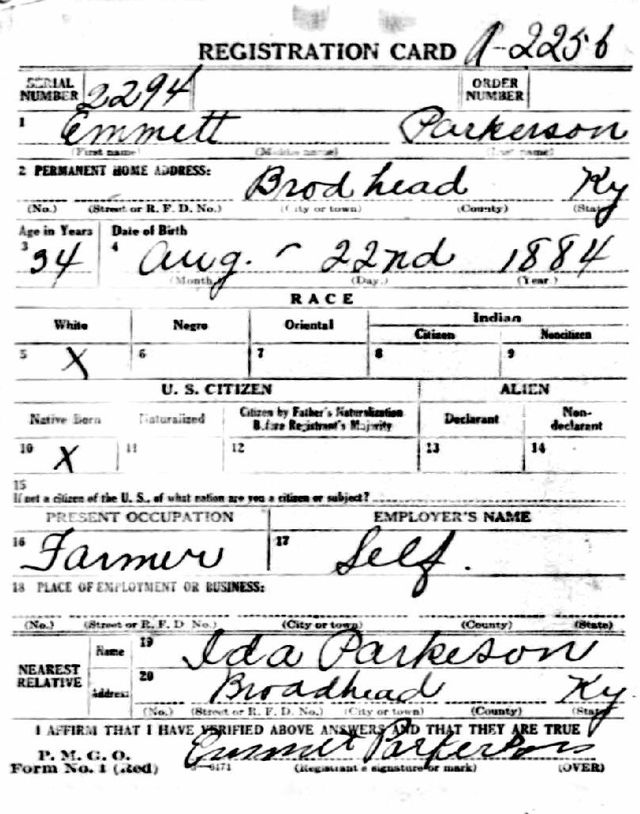 REGISTRATION CARD A-2256
SERIAL NUMBER 2294 ORDER NUMBER
1 Emmett Parkerson
(First name) (Middle name) (Last name)
2 PERMANENT HOME ADDRESS: Brodhead Ky
(No.) (Street or R. F. D. No.) (City or town) (County) (State)
Age in Years Date of Birth
3 34 4 Aug. - 22nd 1884
(Month) (Day.) (Year)
RACE
White Negro Oriental Indian
Citizen Noncitizen
5 X 6 7 8 9
U. S. CITIZEN ALIEN
Native Born Naturalized Citizen by Father's Naturalization Before Registrant's Majority Declarant Non-declarant
10 X 11 12 13 14
15
If not a citizen of the U. S., of what nation are you a citizen or subject?
PRESENT OCCUPATION EMPLOYER'S NAME
16 Farmer 17 Self.
18 PLACE OF EMPLOYMENT OR BUSINESS:
(No.) (Street or R. F. D. No.) (City or town) (County) (State)
NEAREST RELATIVE Name 19 Ida Parkeson
Address 20 Broadhead Ky.
(No.) (Street or R. F. D. No.) (City or town) (County) (State)
I AFFIRM THAT I HAVE VERIFIED ABOVE ANSWERS AND THAT THEY ARE TRUE
P. M. G. O. Emmet Parkerson
Form No. 1 (Red) (Registrant's signature or mark) (OVER)